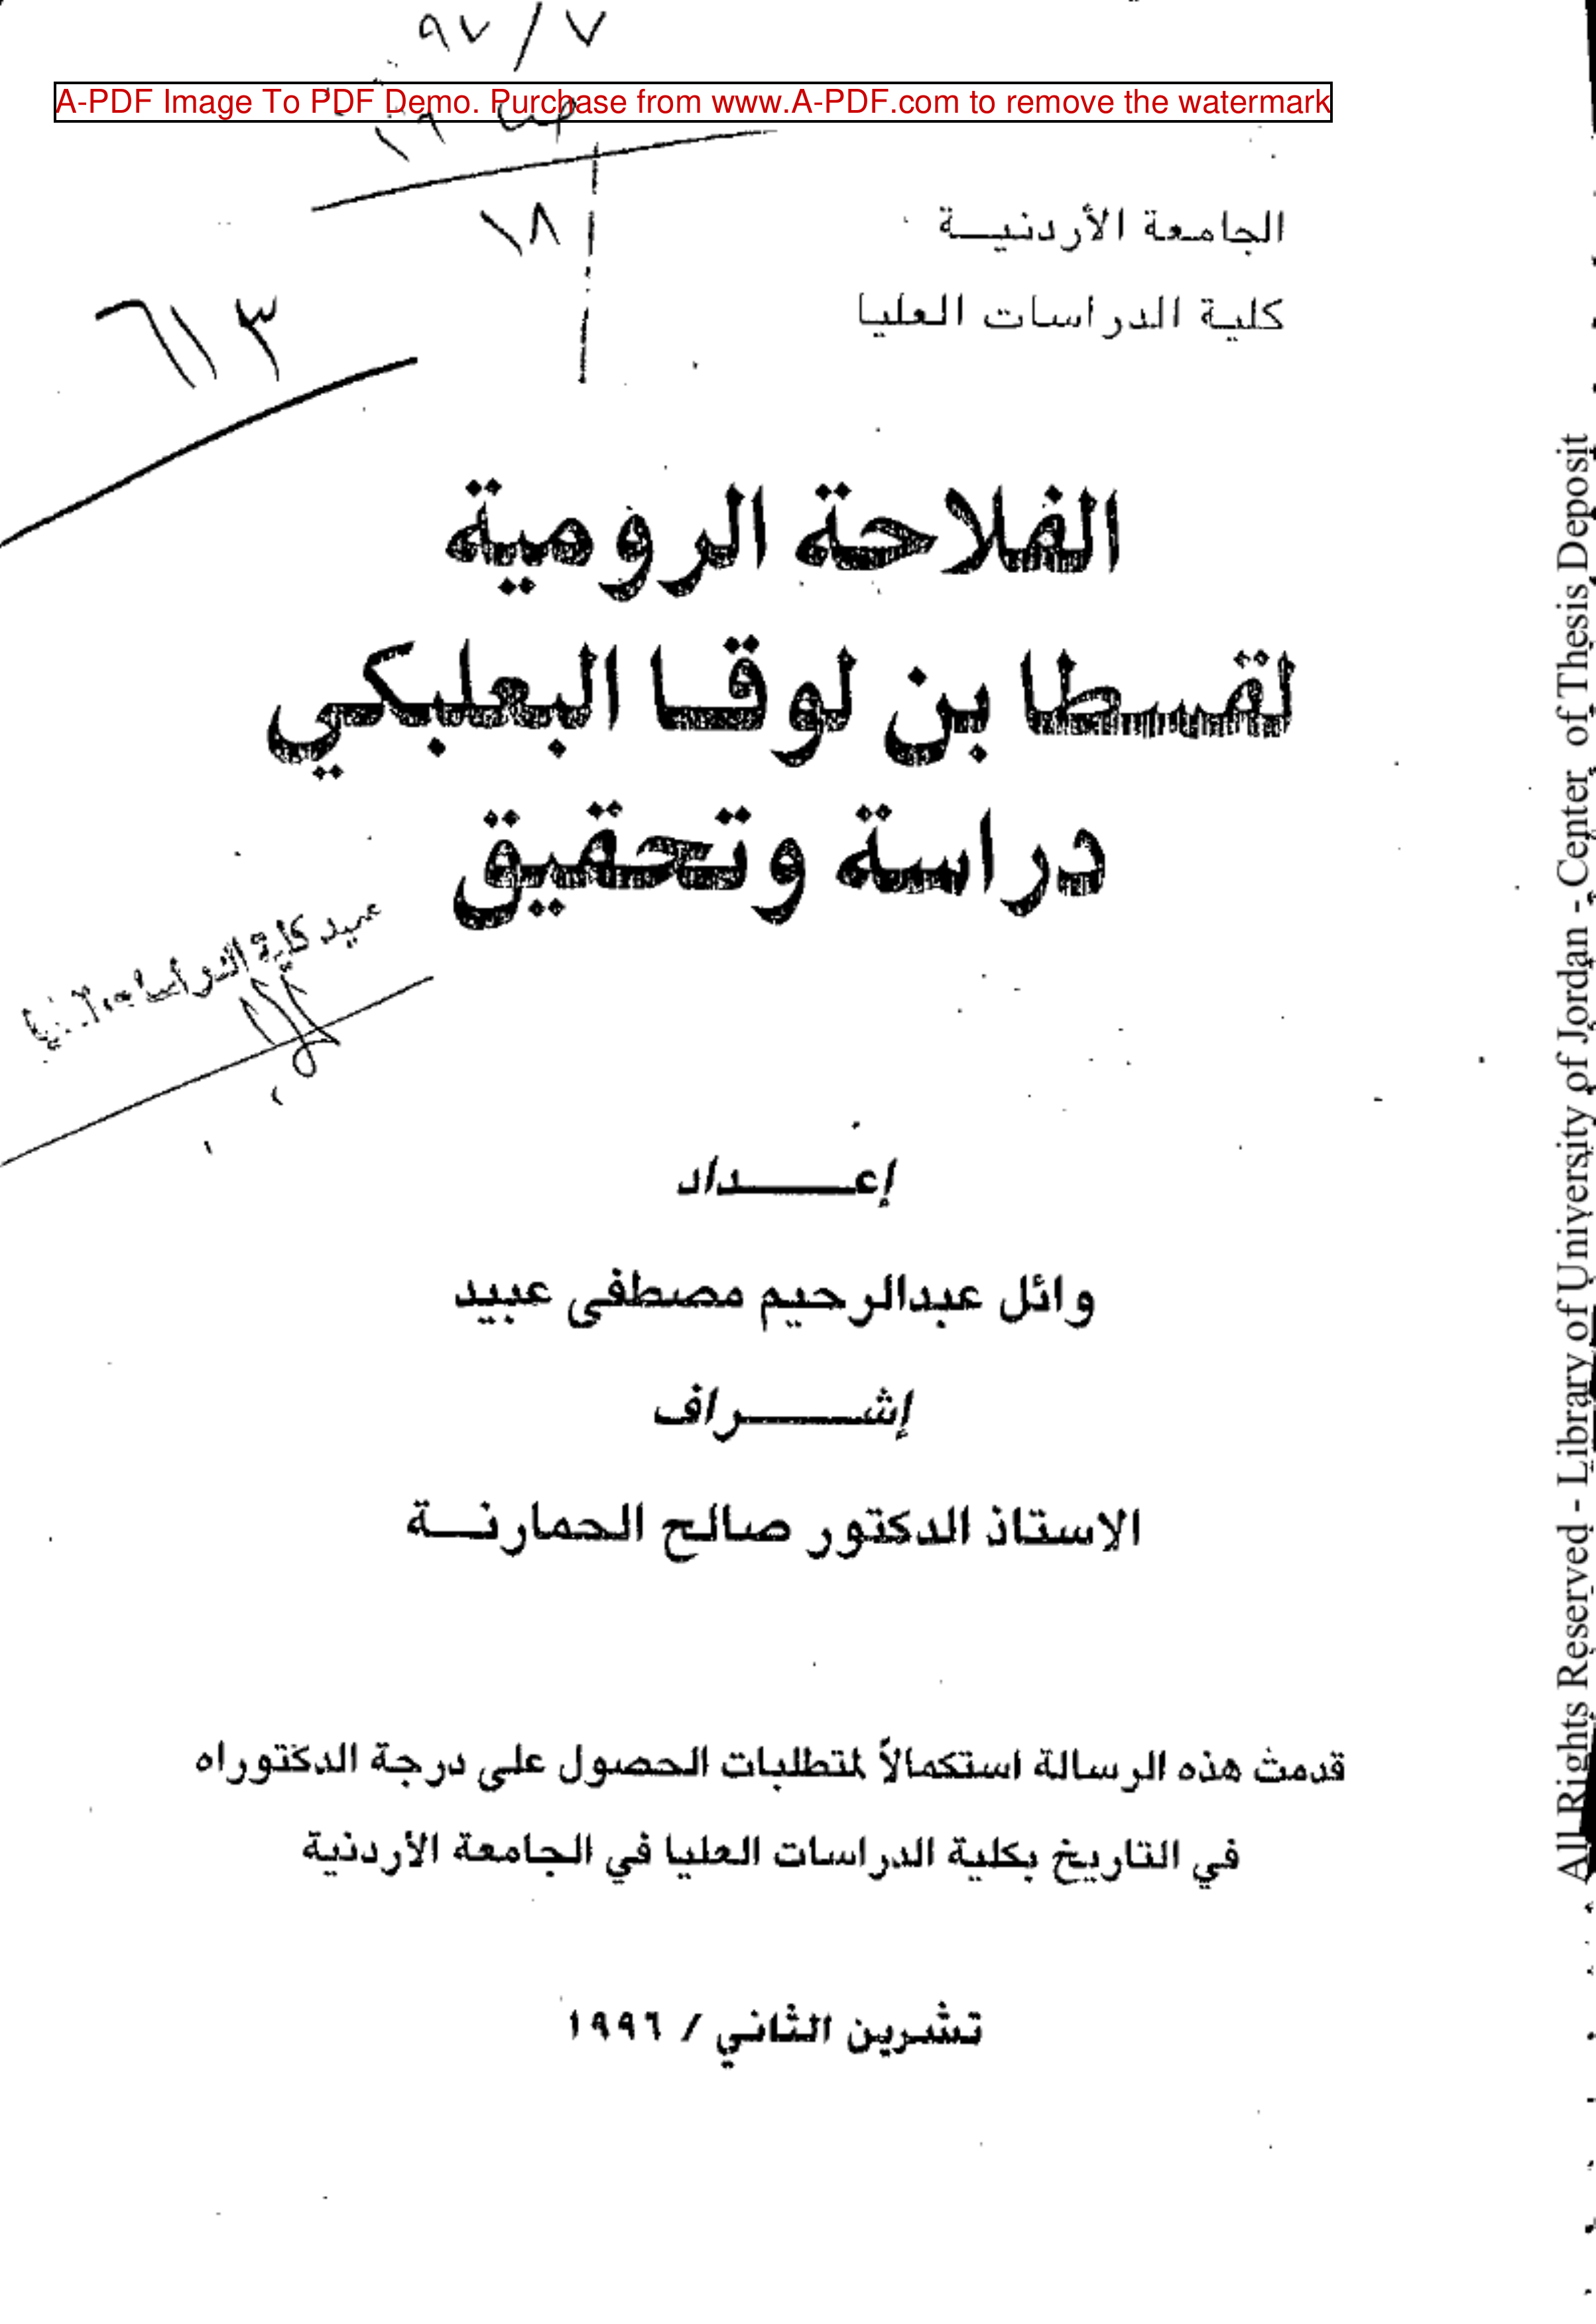 ٩٧/٧
A-PDF Image To PDF Demo. Purchase from www.A-PDF.com to remove the watermark
١٨
٦١٣
الجامعة الأردنيـــة
كلية الدراسات العليا
الفلاحة الرومية
لقسطا بن لوقـا البعلبكي
دراسة وتحقيق
عميد كلية الدراسات العليا
إعــــــداد
وائل عبدالرحيم مصطفى عبيد
إشــــــراف
الاستاذ الدكتور صالح الحمارنـــة
قدمت هذه الرسالة استكمالاً لمتطلبات الحصول على درجة الدكتوراه
في التاريخ بكلية الدراسات العليا في الجامعة الأردنية
تشرين الثاني / ١٩٩٦
All Rights Reserved - Library of University of Jordan - Center of Thesis Deposit